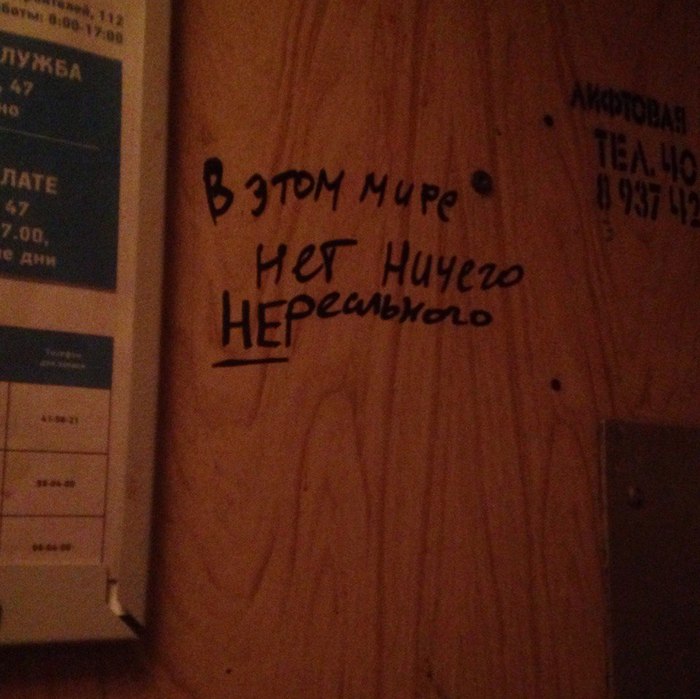 112
боты: 8:00-17:00
ЛУЖБА
, 47
но
ЛАТЕ
47
7.00,
е дни
Телефон
41-08-21
В этом мире
нет ничего
НЕРеального
ЛИФТОВАЯ
ТЕЛ. 40
8 937 42